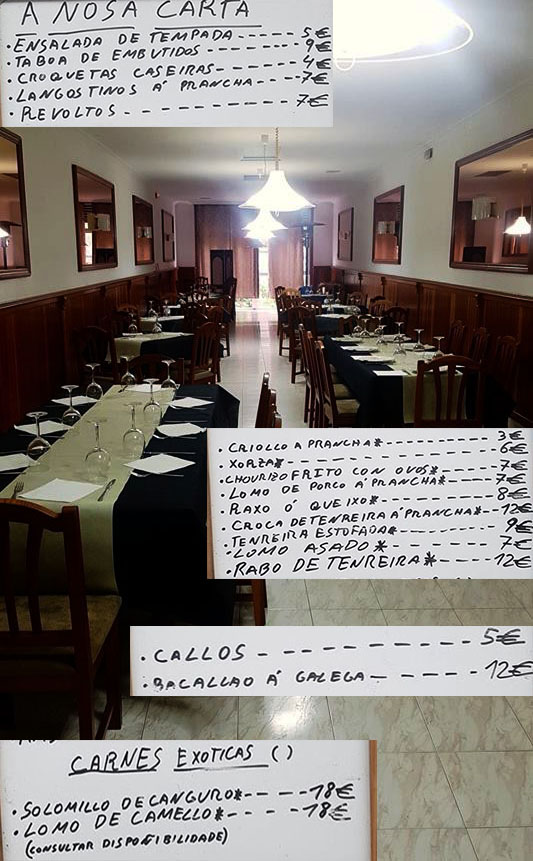 A NOSA CARTA
·ENSALADA DE TEMPADA----- 5€
·TABOA DE EMBUTIDOS ------- 9€
·CROQUETAS CASEIRAS------- 4€
·LANGOSTINOS Á PRANCHA----7€
·REVOLTOS - - - - - - - - - - 7€
·CRIOLLO A PRANCHA*---------- 3€
·XORZA*- - - - - - - - - - - - 6€
·CHOURIZO FRITO CON OVOS*----- 7€
·LOMO DE PORCO Á PRANCHA*----7€
·RAXO Ó QUEIXO*- - - - - - - 8€
·CROCA DE TENREIRA Á PRANCHA*--12€
·TENREIRA ESTOFADA*- - - - - - 9€
·LOMO ASADO*- - - - - - 7€
·RABO DE TENREIRA*- - - - -12€
·CALLOS - - - - - - - - - - 5€
·BACALLAO Á GALEGA- - - - - - 12€
CARNES EXOTICAS ( )
·SOLOMILLO DE CANGURO*-----18€
·LOMO DE CAMELLO*- - - - -18€
(CONSULTAR DISPOÑIBILIDADE)